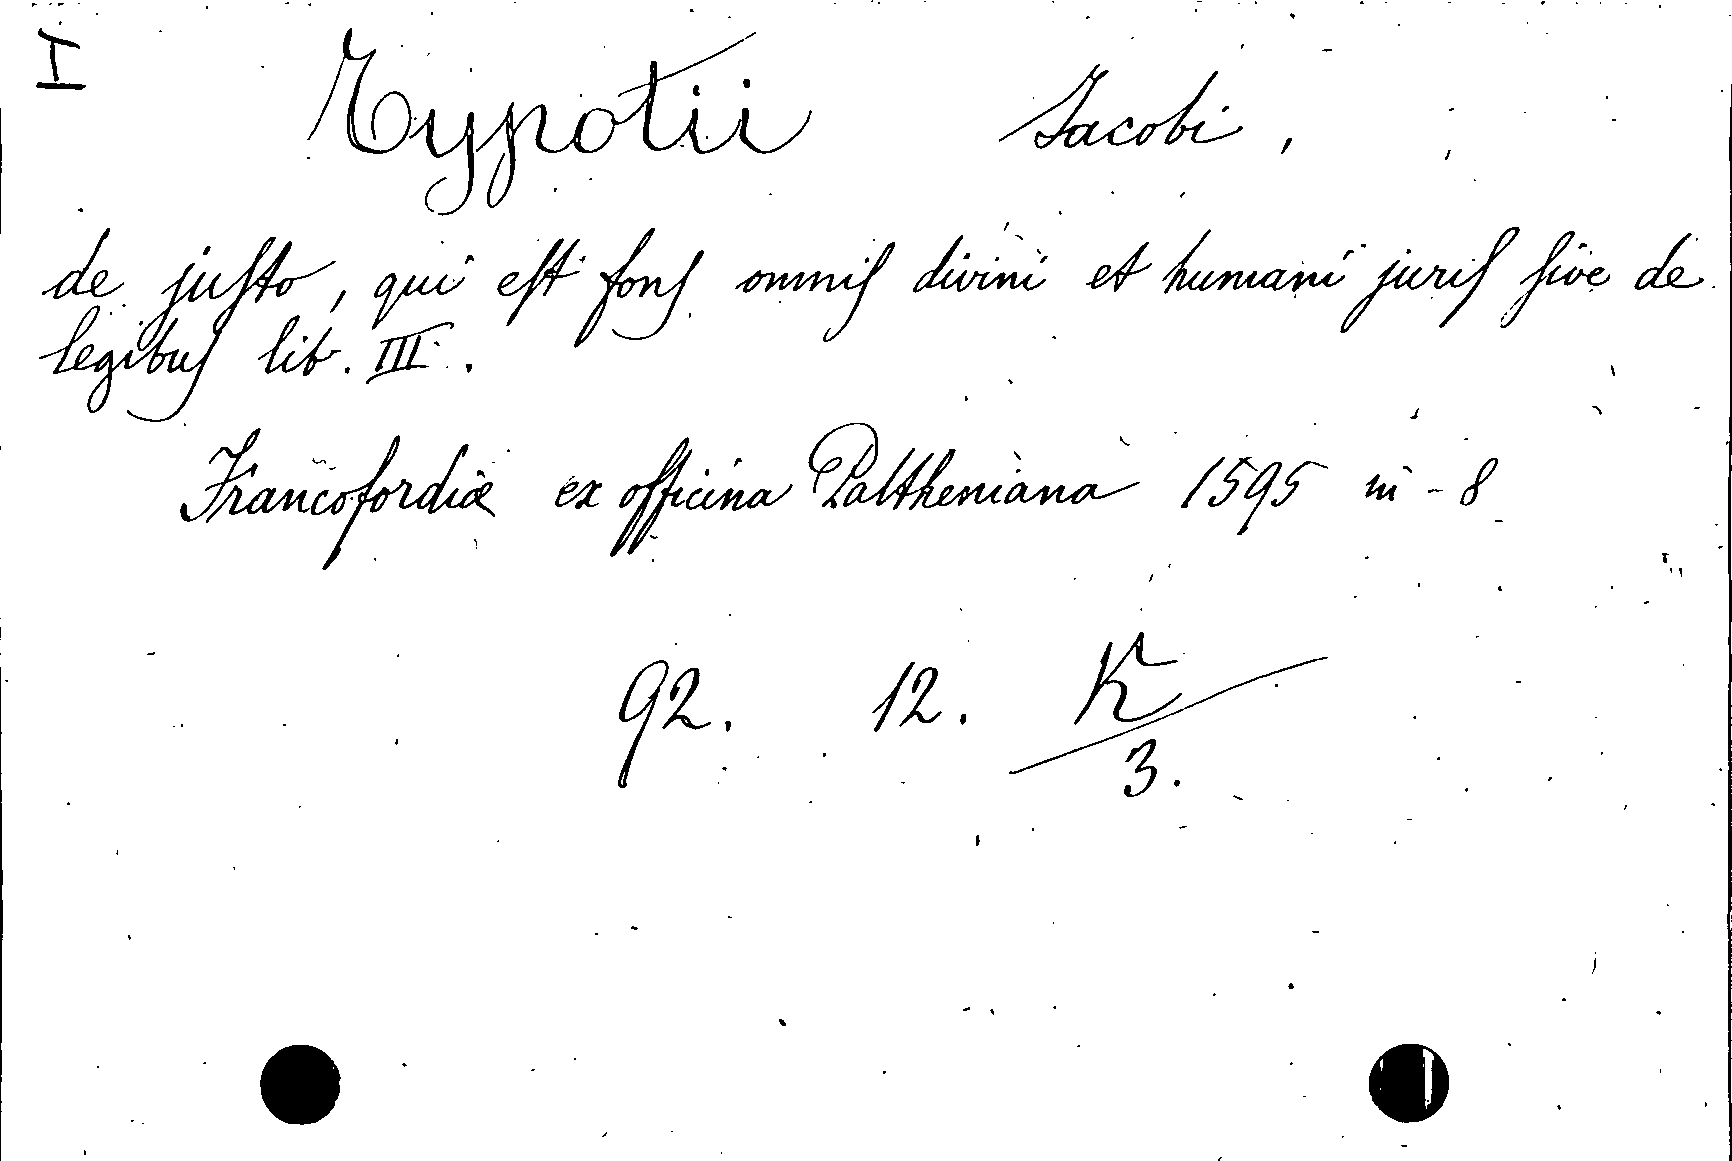 I
Typotii Jacobi,
de justo, qui est fons omnis divini et humani juris sive de
legibus lib. III.
Francofordiæ ex officina Paltheniana 1595 in-8
92. 12. K
3.